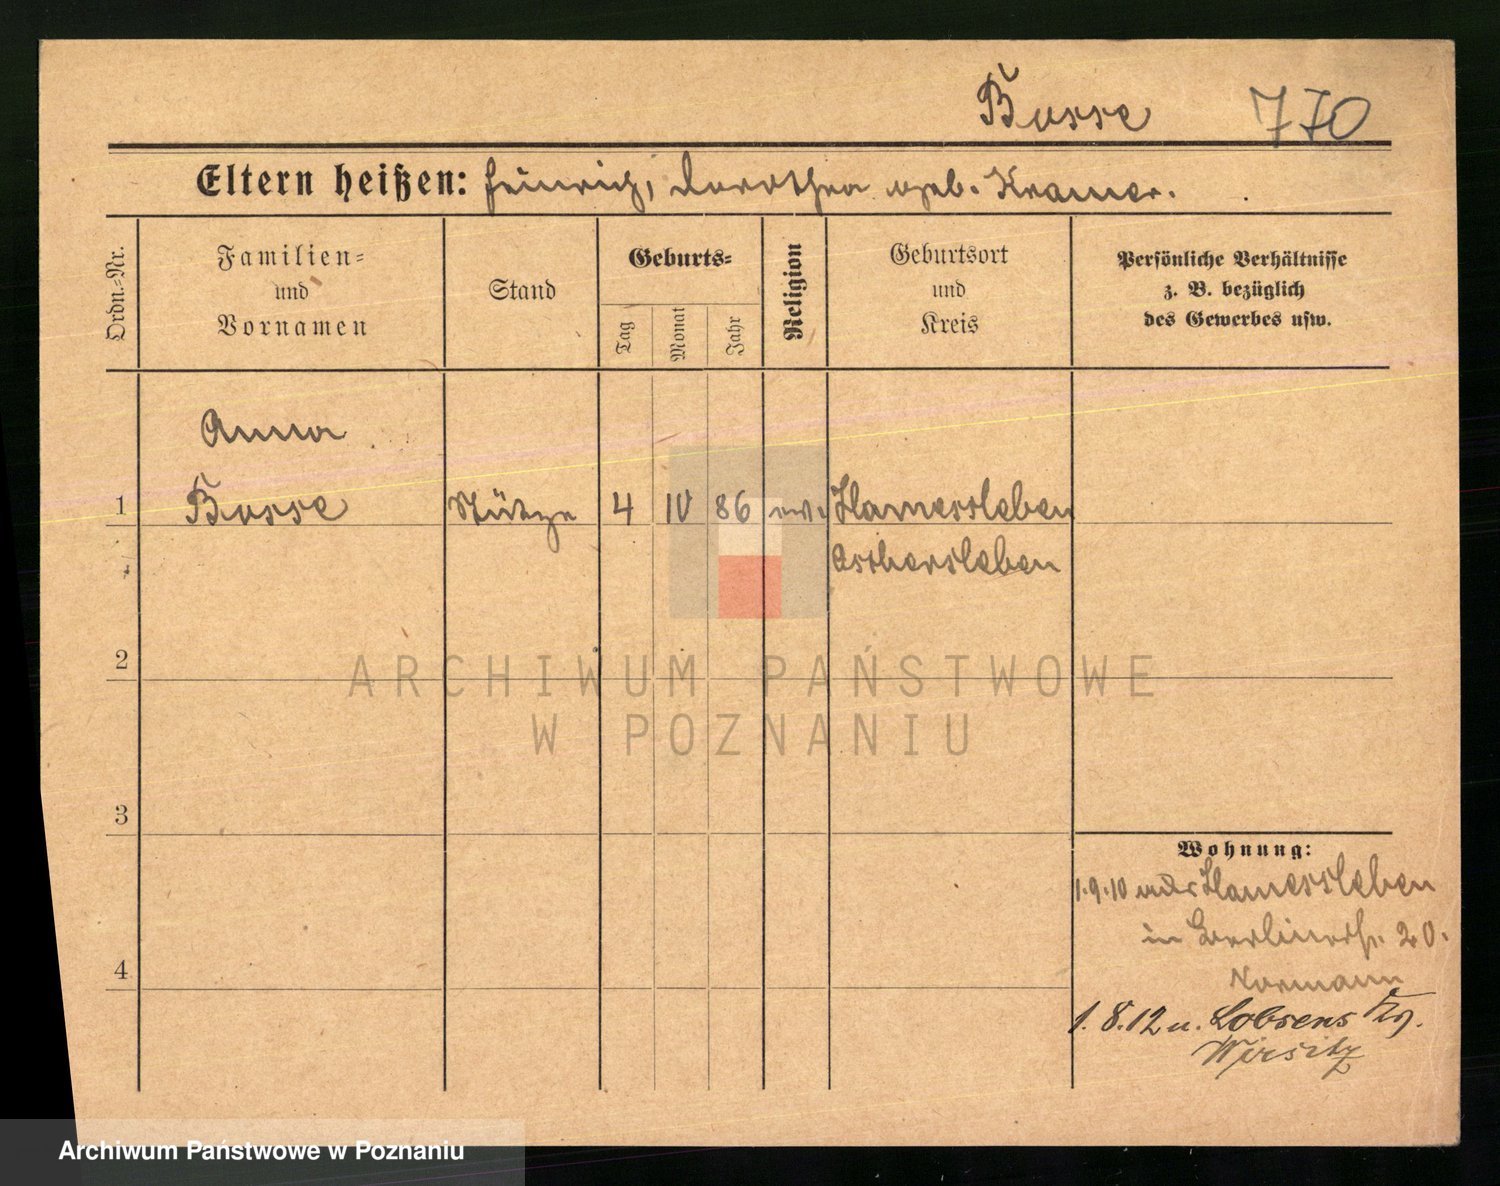 Busse 770
Eltern heißen: Heinrich, Dorothea geb. Kramer.
Ordn.-Nr.
Familien-
und
Vornamen
Stand
Geburts-
Tag
Monat
Jahr
Religion
Geburtsort
und
Kreis
Persönliche Verhältnisse
z. B. bezüglich
des Gewerbes usw.
Anna
1 Busse Stütze 4 10 86 ev. Hamersleben
Oschersleben
2
3
4
Wohnung:
1.9.10 Hamersleben
in Berlinerstr. 20.
Normann
1.8.12 n. Lobsens Krs.
Wirsitz
ARCHIWUM PAŃSTWOWE
W POZNANIU
Archiwum Państwowe w Poznaniu